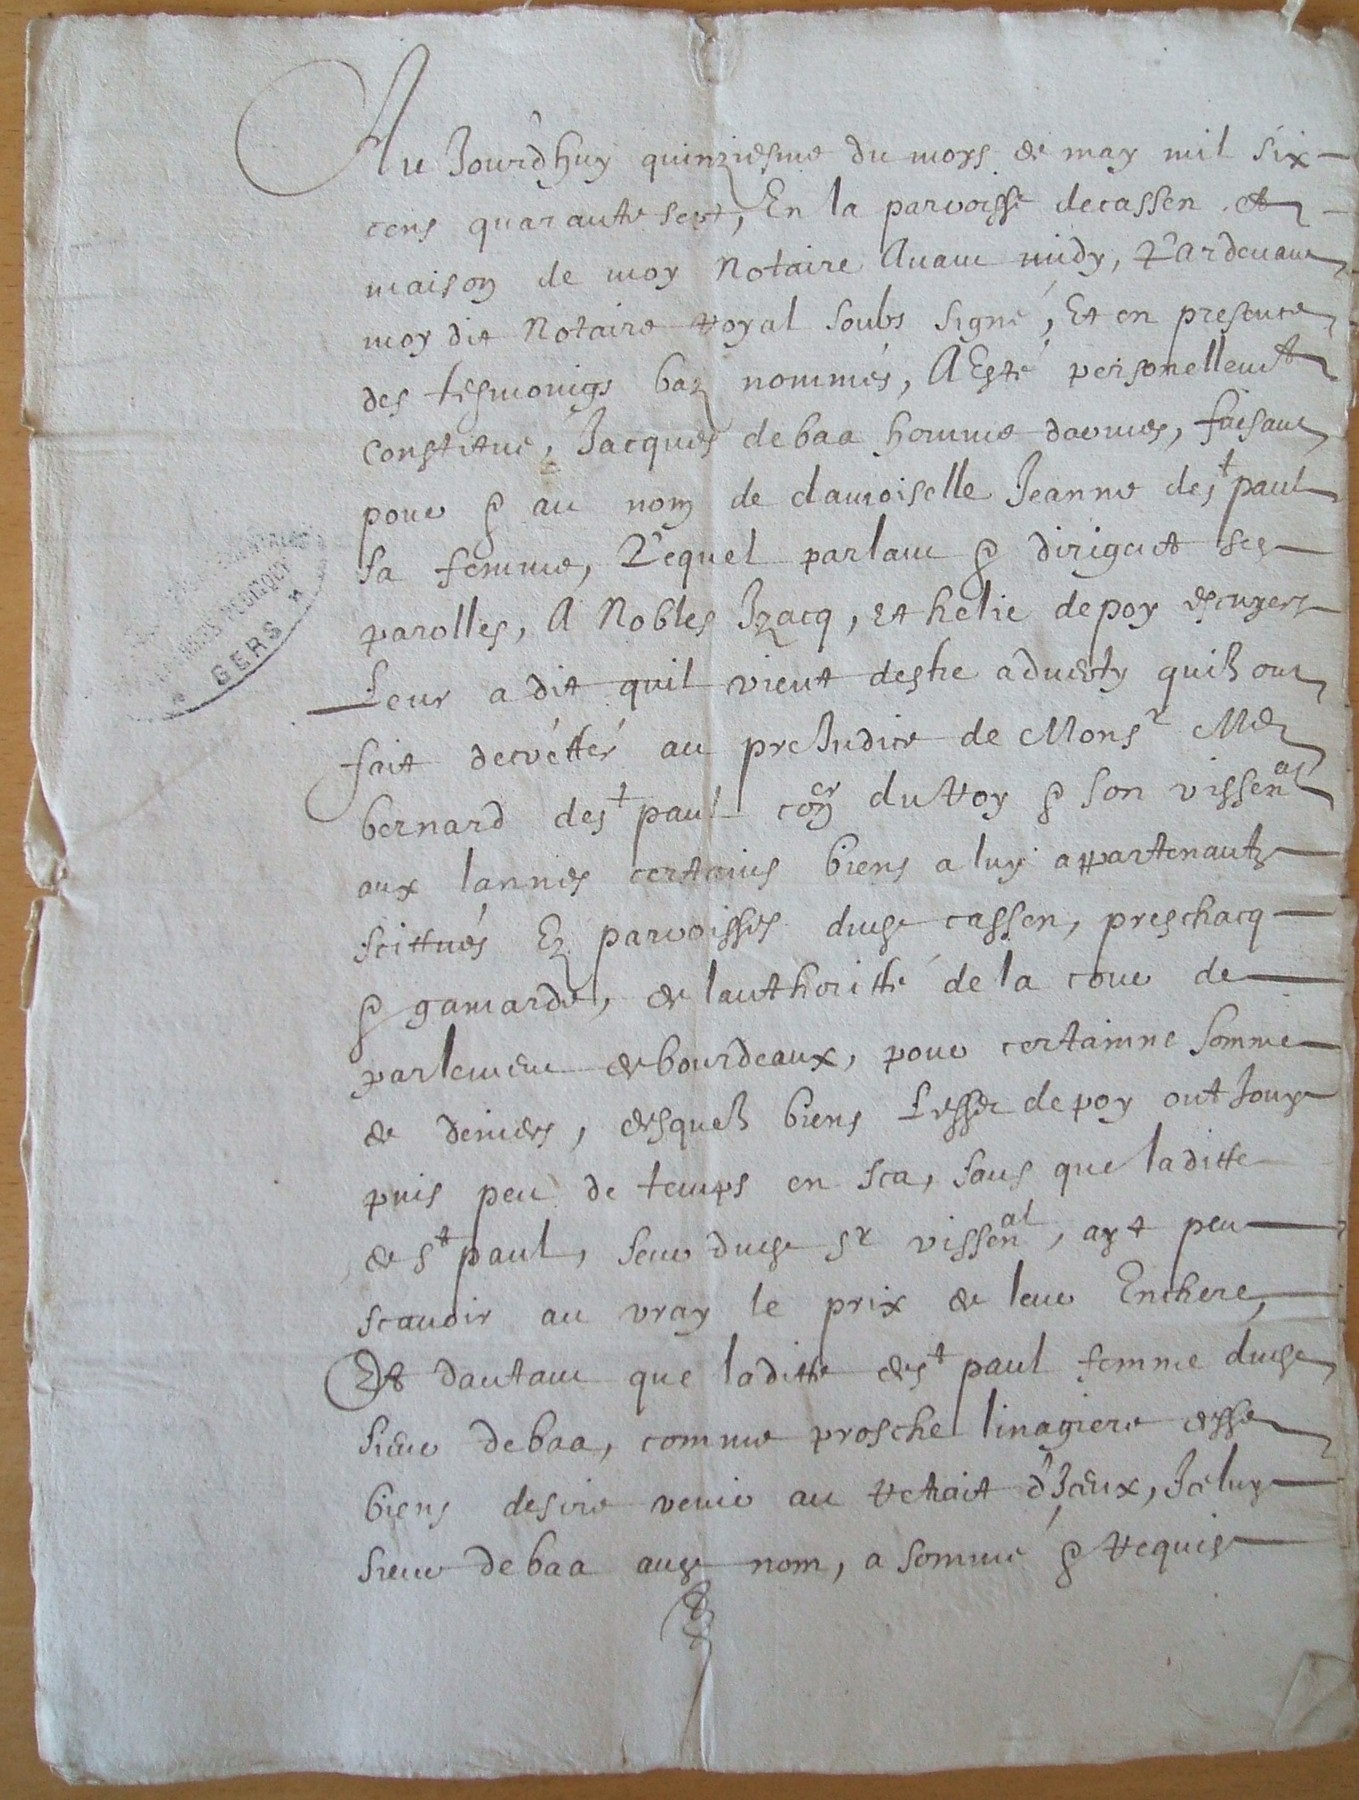 Au Jourdhuy quinziesme du moys de may mil six
cens quarante sept, En la parroisse de cassen et
maison de moy Notaire Avant midy, Pardevant
moy dit Notaire royal soubs signé, Et en presence
des tesmoings baz nommés, A Esté personellemt
Constitué, Jacques debaa homme darmes, faisant
pour & au nom de damoiselle Jeanne de st paul
sa femme, Lequel parlant & dirigent ses
parolles, A Nobles Izacq, et helie depoy escuyers
Leur a dit quil vient destre adverty quilz ont
fait decrétter au preJudice de Monsr Me
bernard de st paul coner du Roy & son vissenal
aux lannes certains biens a luy appartenantz
scittués Ez parroisses dud cassen, preschacq
& gamarde, de lauthoritté de la cour de
parlement de bourdeaux, pour certainne somme
de deniers, desquelz biens Lesd depoy ont Jouy
puis peu de temps en sca, sans que laditte
de st paul, seur dud sr vissenal, ayt peu
scavoir au vray le prix de leur Enchere,
Et dautant que laditte de st paul femme dud
sieur debaa, comme prosche linagiere desd
biens desire venir au retrait d'Iceux, Iceluy
sieur debaa aud nom, a sommé & requis
GERS